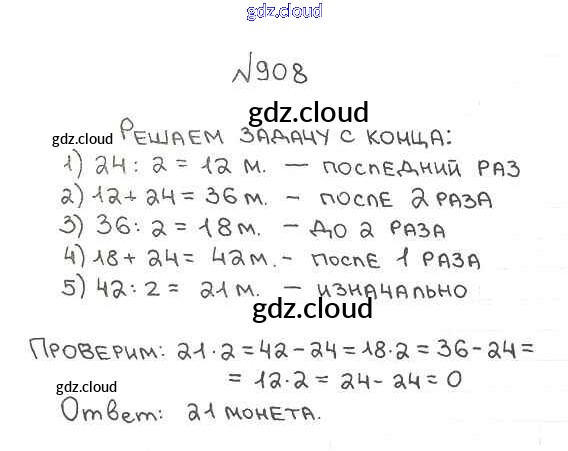 gdz.cloud
№908
gdz.cloud
gdz.cloud
РЕШАЕМ ЗАДАЧУ С КОНЦА:
1) 24 : 2 = 12 м. — ПОСЛЕДНИЙ РАЗ
2) 12 + 24 = 36 м. - ПОСЛЕ 2 РАЗА
3) 36 : 2 = 18 м. - ДО 2 РАЗА
4) 18 + 24 = 42 м. - ПОСЛЕ 1 РАЗА
5) 42 : 2 = 21 м. - ИЗНАЧАЛЬНО
gdz.cloud
ПРОВЕРИМ: 21 · 2 = 42 - 24 = 18 · 2 = 36 - 24 =
= 12 · 2 = 24 - 24 = 0
gdz.cloud
Ответ: 21 МОНЕТА.